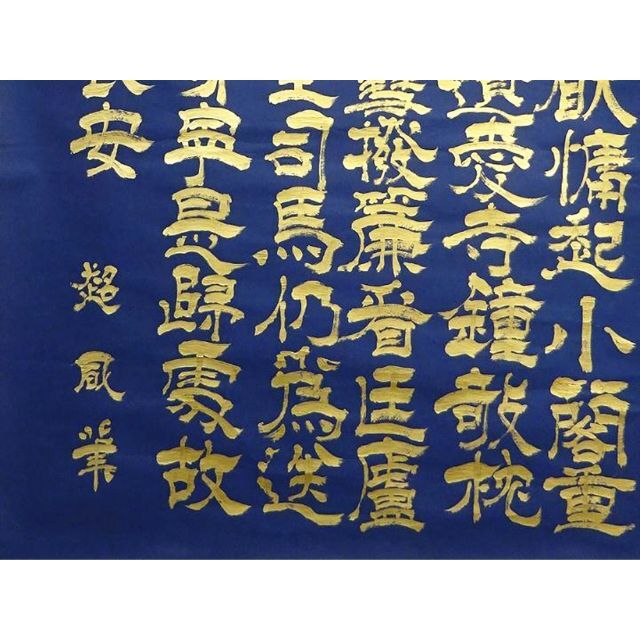 慵起小閣重
遺愛寺鐘敧枕
雪撥簾看匡廬
司馬仍為送
寧是歸處故
安
筆